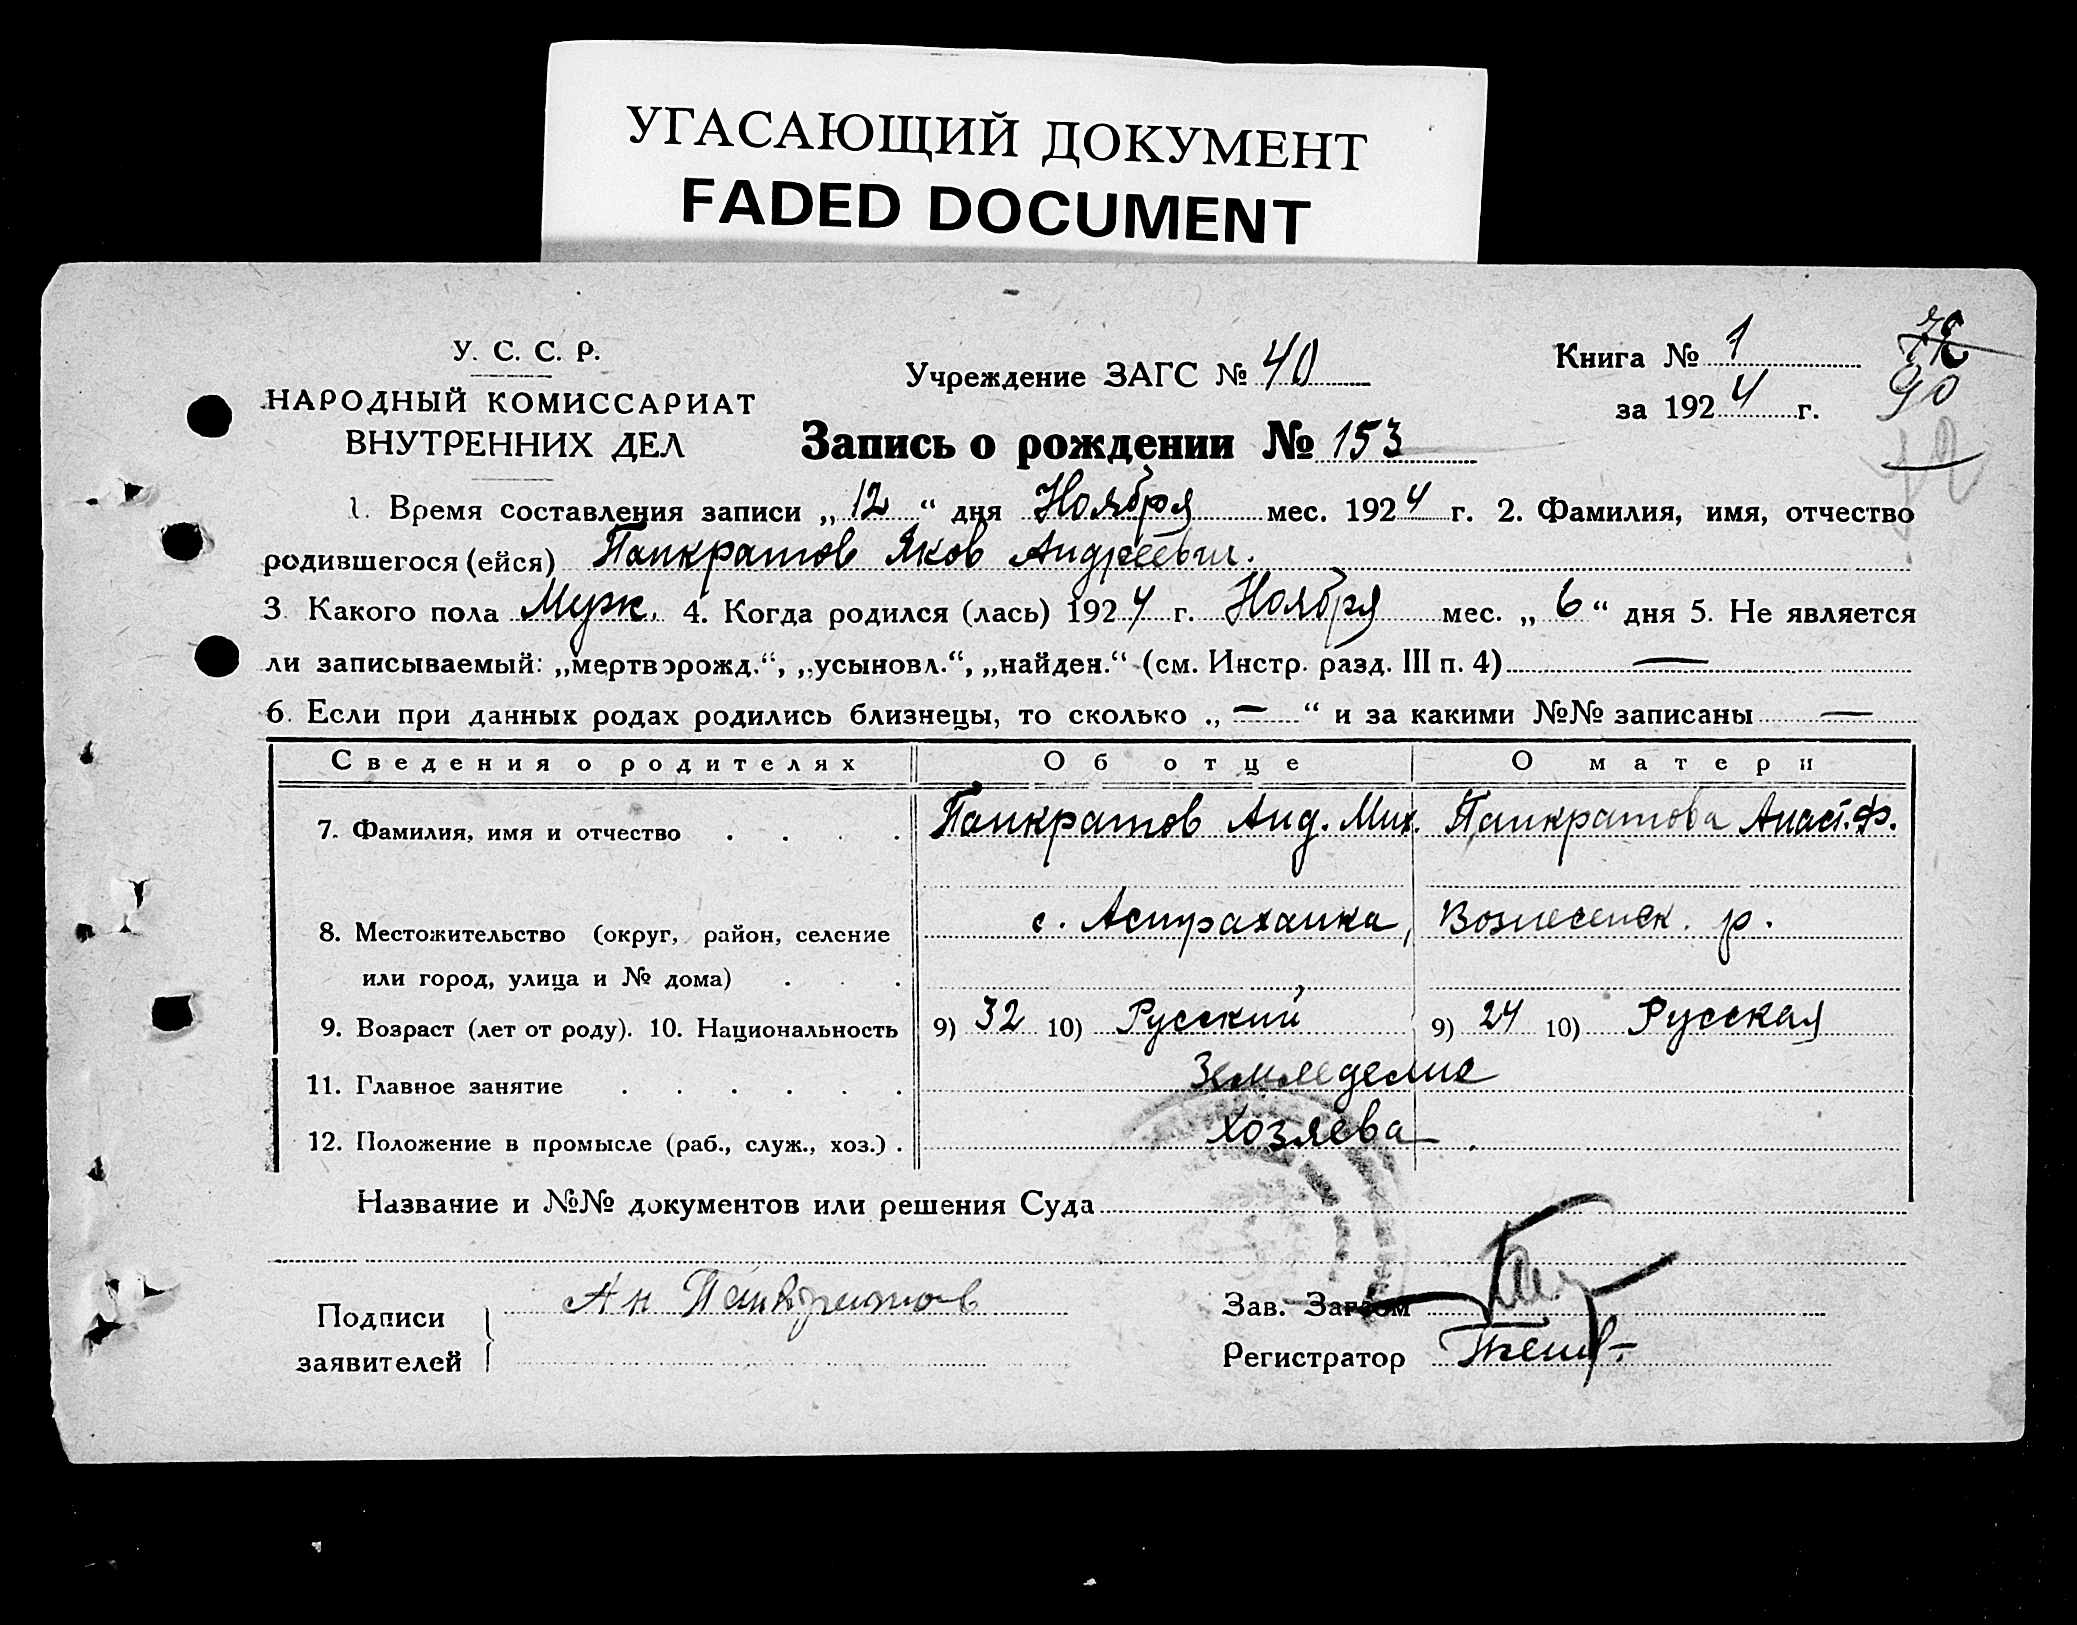 УГАСАЮЩИЙ ДОКУМЕНТ
FADED DOCUMENT
У. С. С. Р.
НАРОДНЫЙ КОМИССАРИАТ
ВНУТРЕННИХ ДЕЛ
Учреждение ЗАГС № 40
Книга № 1
за 1924 г.
90
Запись о рождении № 153
1. Время составления записи „12“ дня Ноября мес. 1924 г. 2. Фамилия, имя, отчество
родившегося (ейся) Панкратов Яков Андреевич.
3. Какого пола Муж. 4. Когда родился (лась) 1924 г. Ноября мес. „6“ дня 5. Не является
ли записываемый: „мертворожд.“, „усыновл.“, „найден.“ (см. Инстр. разд. III п. 4) —
6. Если при данных родах родились близнецы, то сколько „—“ и за какими №№ записаны —
Сведения о родителях Об отце О матери
7. Фамилия, имя и отчество . . . . Панкратов Анд. Мих. Панкратова Анаст. Ф.
8. Местожительство (округ, район, селение с. Астраханка, Вознесенск. р.
или город, улица и № дома) . . .
9. Возраст (лет от роду). 10. Национальность 9) 32 10) Русский 9) 24 10) Русская
11. Главное занятие . . . . . . Земледелие
12. Положение в промысле (раб., служ., хоз.) . Хозяева
Название и №№ документов или решения Суда
Подписи Ан Панкратов
заявителей
Зав. Загсом
Регистратор